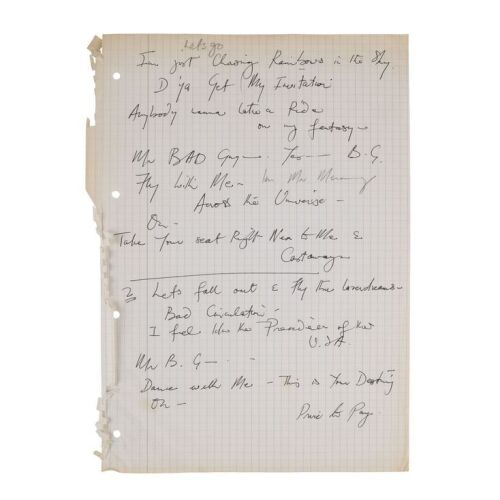 Let's go
I'm just Chasing Rainbows in the Sky
D'ya Get My Invitation
Anybody wanna take a Ride
on my fantasy
Mr BAD Guy — Yes — B.G.
Fly With Me — I'm Mr Mercury
Across the Universe —
Oh —
Take Your seat Right Next to Me &
Castaway
2 Let's fall out & Fly thru
Bad Circulation —
I feel like the President of the
U.S.A.
Mr B. G — . —
Dance with Me — This is Your Destiny
Oh —
Price to Pay